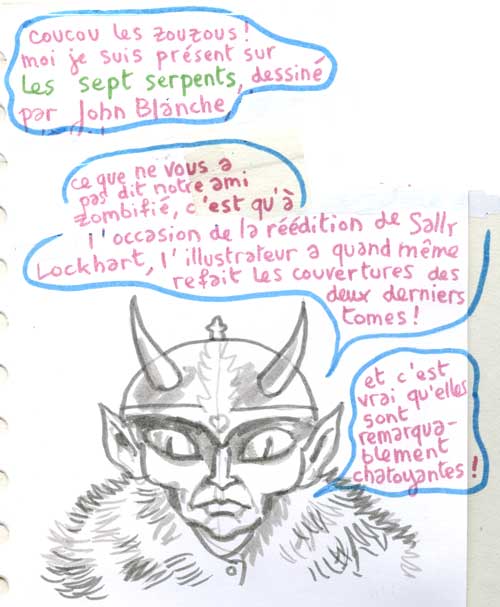 coucou les zouzous!
moi je suis présent sur
les sept serpents, dessiné
par John Blanche
ce que ne vous a
pas dit notre ami
zombifié, c'est qu'à
l'occasion de la réédition de Sally
Lockhart, l'illustrateur a quand même
refait les couvertures des
deux derniers
tomes!
et c'est
vrai qu'elles
sont
remarqua-
blement
chatoyantes!